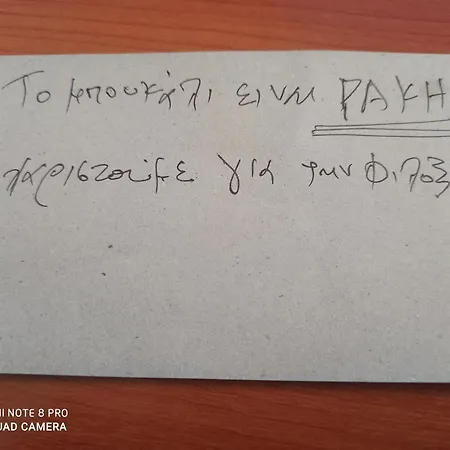 Το μπουκάλι ειναι ΡΑΚΗ
χαριστούμε για την Φιλοξ
MI NOTE 8 PRO
UAD CAMERA